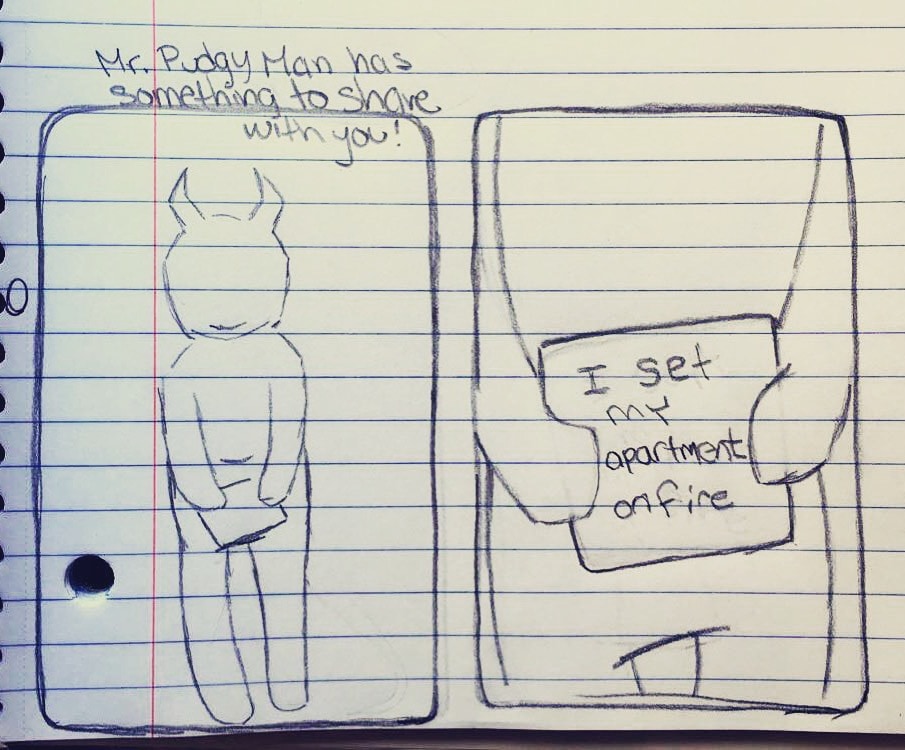 Mr. Pudgy Man has
something to share
with you!
I set
my
apartment
on fire